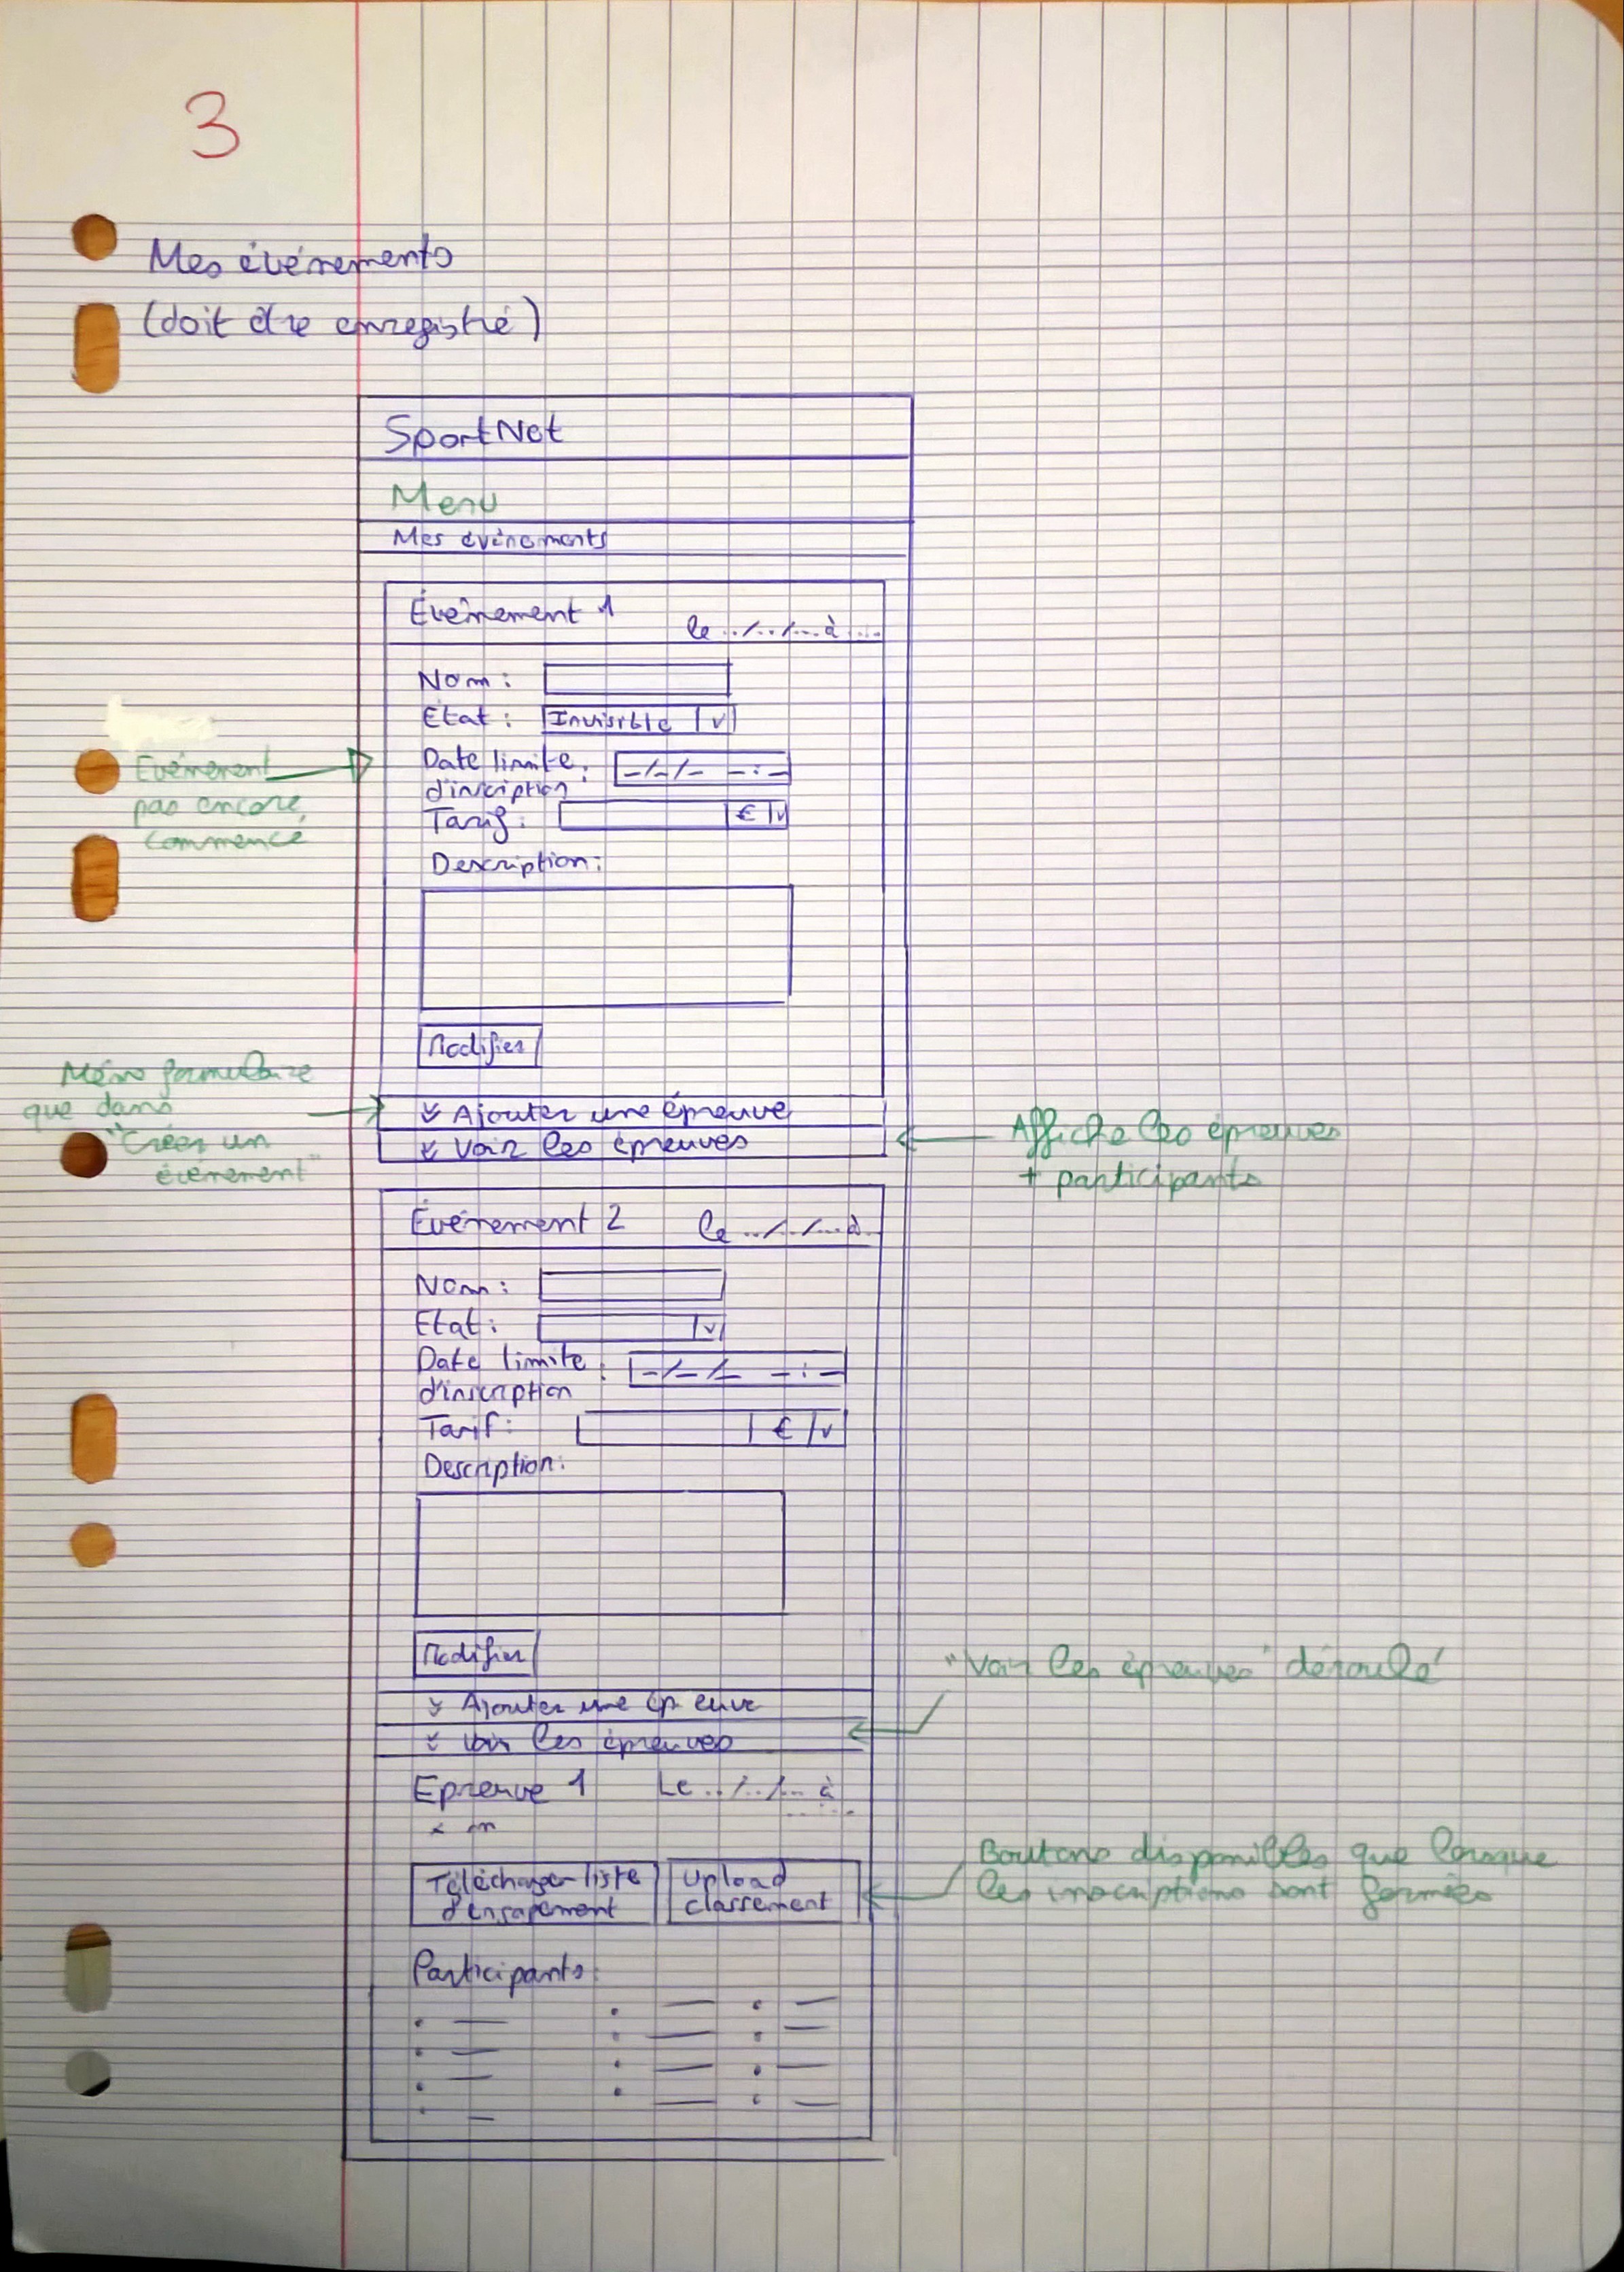 3
Mes événements
(doit être enregistré)
SportNet
Menu
Mes événements
Événement 1
le ../../... à ...
Nom :
Etat : Invisible v
Evénement
pas encore
commencé
Date limite : _/_/_ _:_
d'inscription
Tarif : € v
Description :
Modifier
Même formulaire
que dans
"Créer un
événement"
v Ajouter une épreuve
v Voir les épreuves
Affiche les épreuves
+ participants
Événement 2 le ../../... à ..
Nom :
Etat : v
Date limite : _/_/_ _:_
d'inscription
Tarif : € v
Description :
Modifier
"Voir les épreuves" déroulé
v Ajouter une épreuve
v Voir les épreuves
Epreuve 1 Le ../../... à
.....
x m
Télécharger liste
d'engagement
Upload
classement
Boutons disponibles que lorsque
les inscriptions sont fermées
Participants :